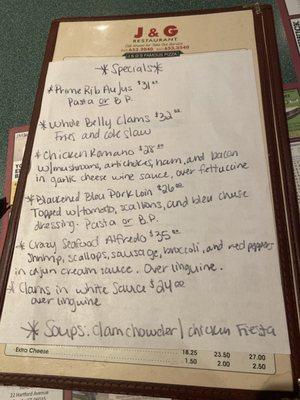 J & G
RESTAURANT
633.3840 633.3540
J & G'S FAMOUS PIZZA
* Specials *
* Prime Rib Au Jus $31.00
Pasta or B.P.
* Whole Belly Clams $32.00
Fries and cole slaw
* Chicken Romano $28.00
w/mushrooms, artichokes, ham, and bacon
in garlic cheese wine sauce, over fettuccine
* Blackened Bleu Pork Loin $26.00
Topped w/tomato, scallions, and bleu chese
dressing. Pasta or B.P.
* Crazy Seafood Alfredo $35.00
Shrimp, scallops, sausage, broccoli, and red peppers
in cajun cream sauce. Over linguine.
* Clams in white Sauce $24.00
over linguine
* Soups: clam chowder / chicken Fiesta
18.25 23.50 27.00
Extra Cheese 1.50 2.00 2.50
22 Hartford Avenue